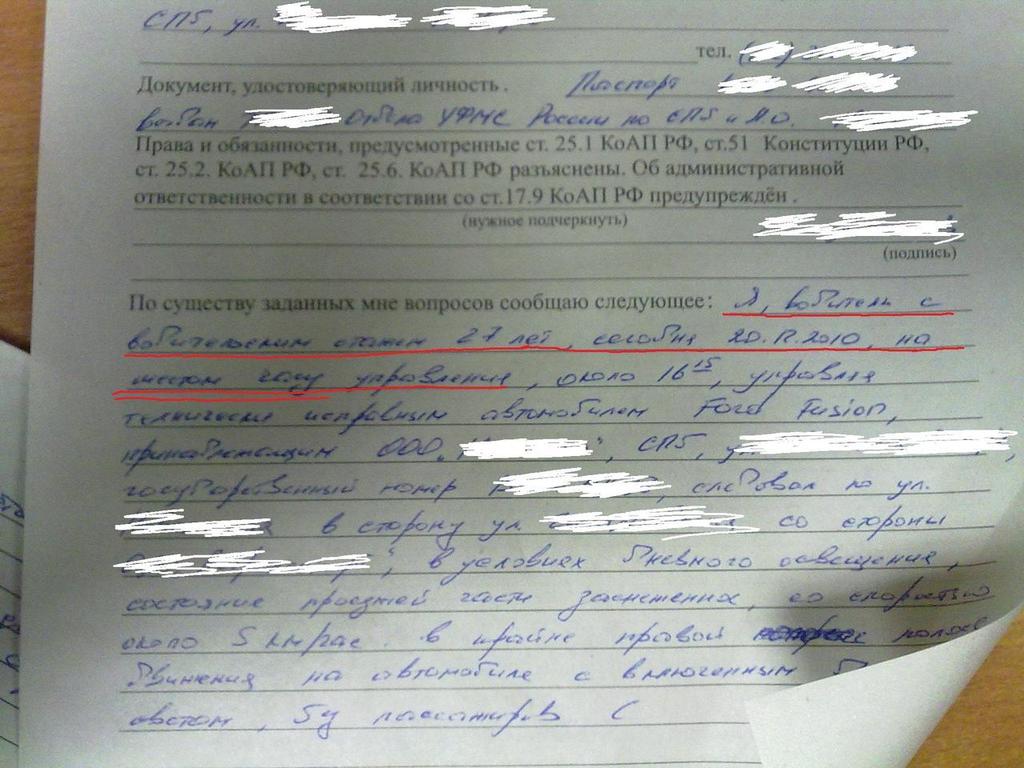 СПб, ул.
тел. (
Документ, удостоверяющий личность . Паспорт
выдан Отдела УФМС России по СПб и ЛО.
Права и обязанности, предусмотренные ст. 25.1 КоАП РФ, ст.51 Конституции РФ,
ст. 25.2. КоАП РФ, ст. 25.6. КоАП РФ разъяснены. Об административной
ответственности в соответствии со ст.17.9 КоАП РФ предупреждён .
(нужное подчеркнуть)
(подпись)
По существу заданных мне вопросов сообщаю следующее: Я, водитель с
водительским стажем 27 лет, сегодня 20.12.2010, на
шестом часу управления, около 16 15, управляя
технически исправным автомобилем Ford Fusion,
принадлежащим ООО „ ", СПб, у
государственный номер , следовал по ул.
в сторону ул. со стороны
", в условиях дневного освещения,
состояние проезжей части заснеженная, со скоростью
около 5 км/час. в крайне правой полосе
движения на автомобиле с включенным
светом, без пассажиров С